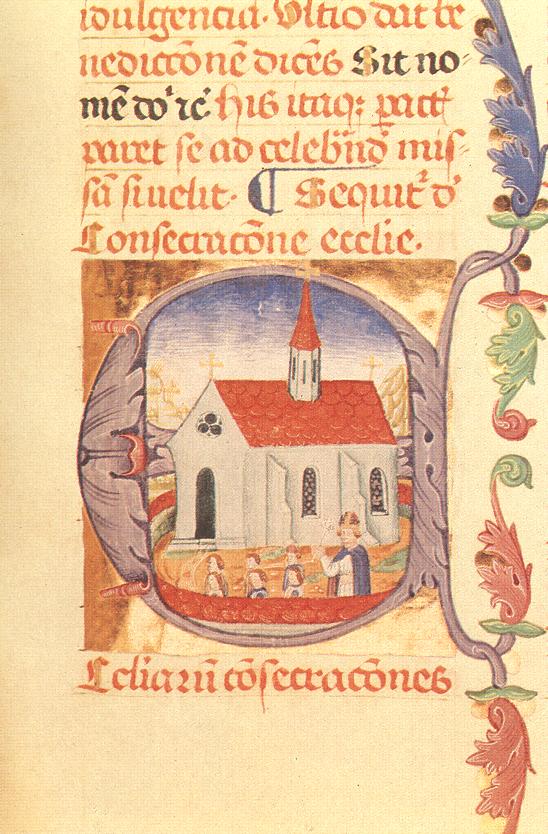 idulgencia. Vltio dat be
nedictōnē dicēs Sit no-
mē dōⁱ ⁊cͨ his itaqꝫ ꝑactꝭ
paret se ad celebrˉnd̄ mis-
sā si uelit. ¶ Sequitᷣ d̄
Consecracōne ecclie.
Ccliarū cōsecracōnes